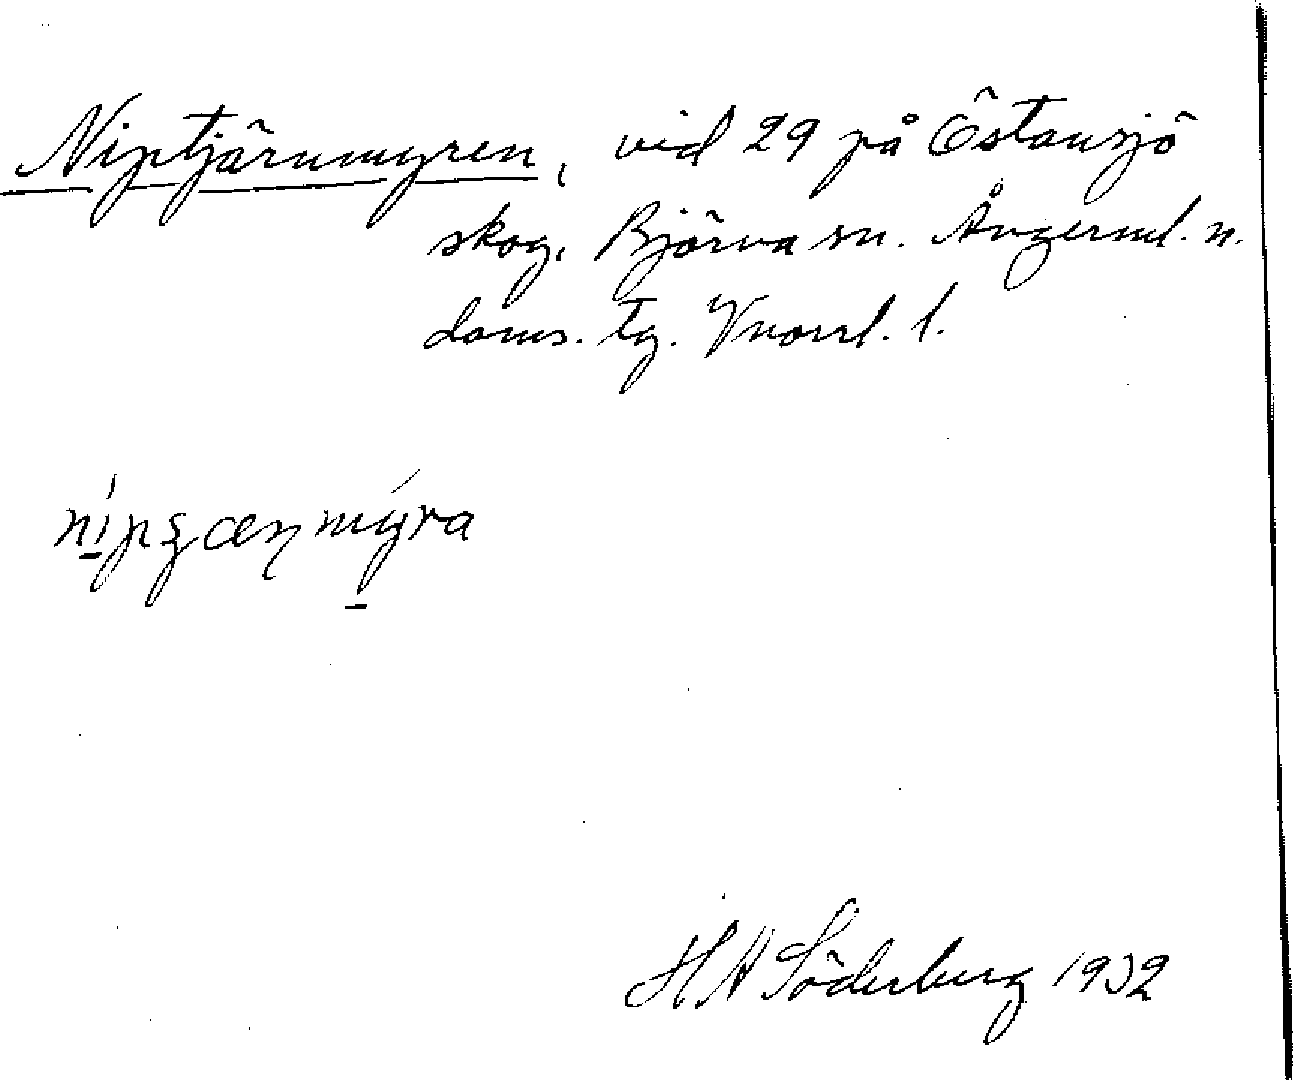 Niptjärnmyren, vid 29 på Östansjö
skog, Björna sn. Ångerml. n.
doms. tg. Vnorrl. l.
H A Söderberg 1932